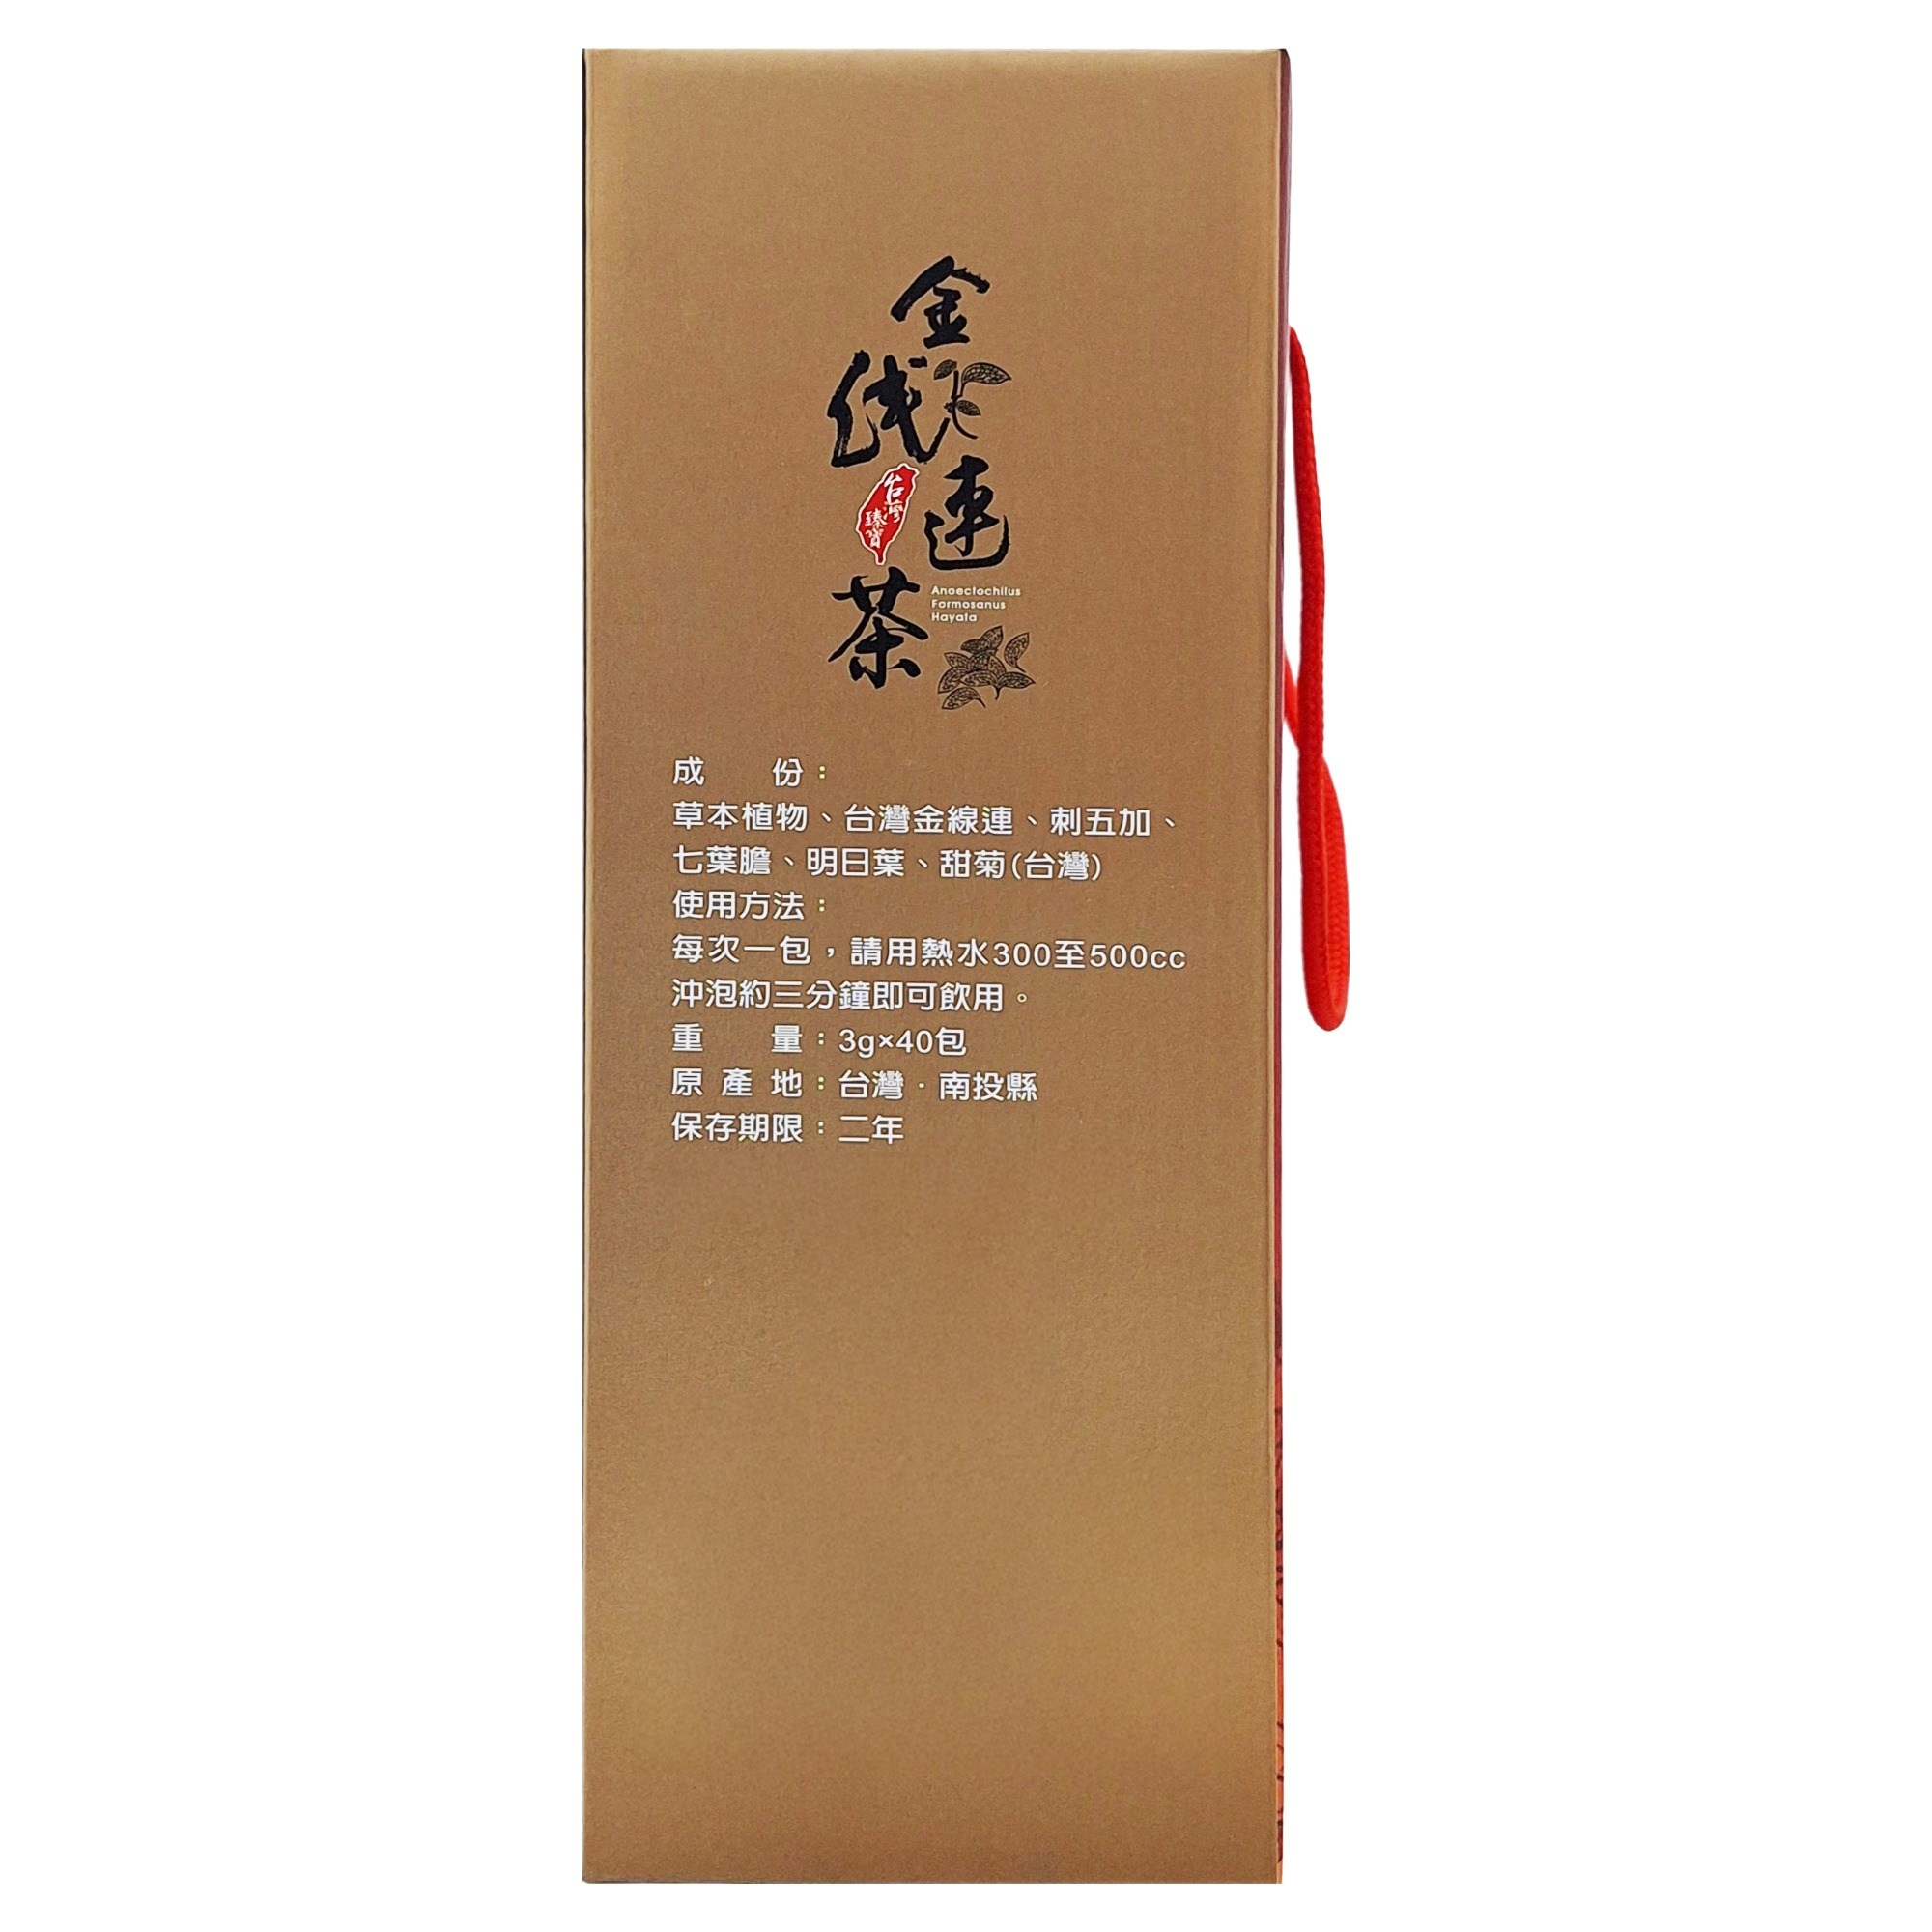 金
线
連
台灣
臻寶
茶
Anoectochilus
Formosanus
Hayata
成　　份：
草本植物、台灣金線連、刺五加、
七葉膽、明日葉、甜菊(台灣)
使用方法：
每次一包，請用熱水300至500cc
沖泡約三分鐘即可飲用。
重　　量：3g×40包
原 產 地：台灣·南投縣
保存期限：二年